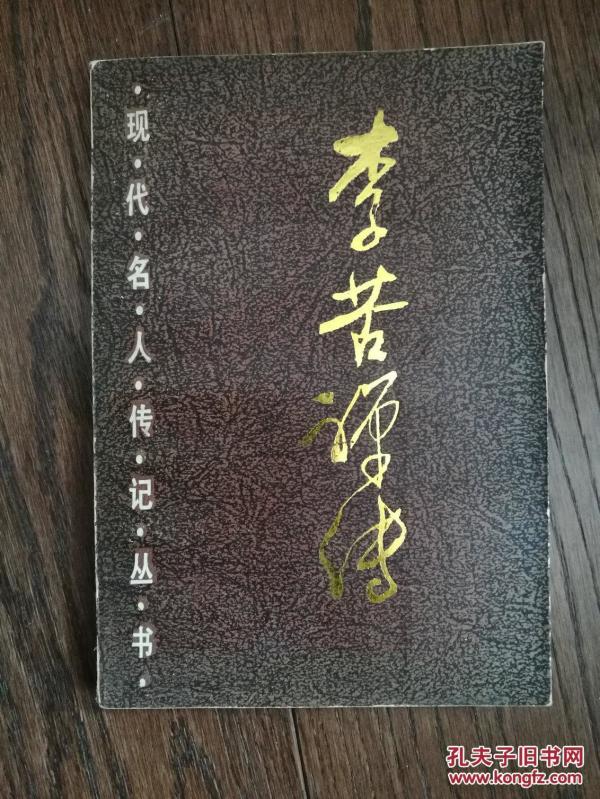 李苦禅传
·现·代·名·人·传·记·丛·书·
孔夫子旧书网
www.kongfz.com